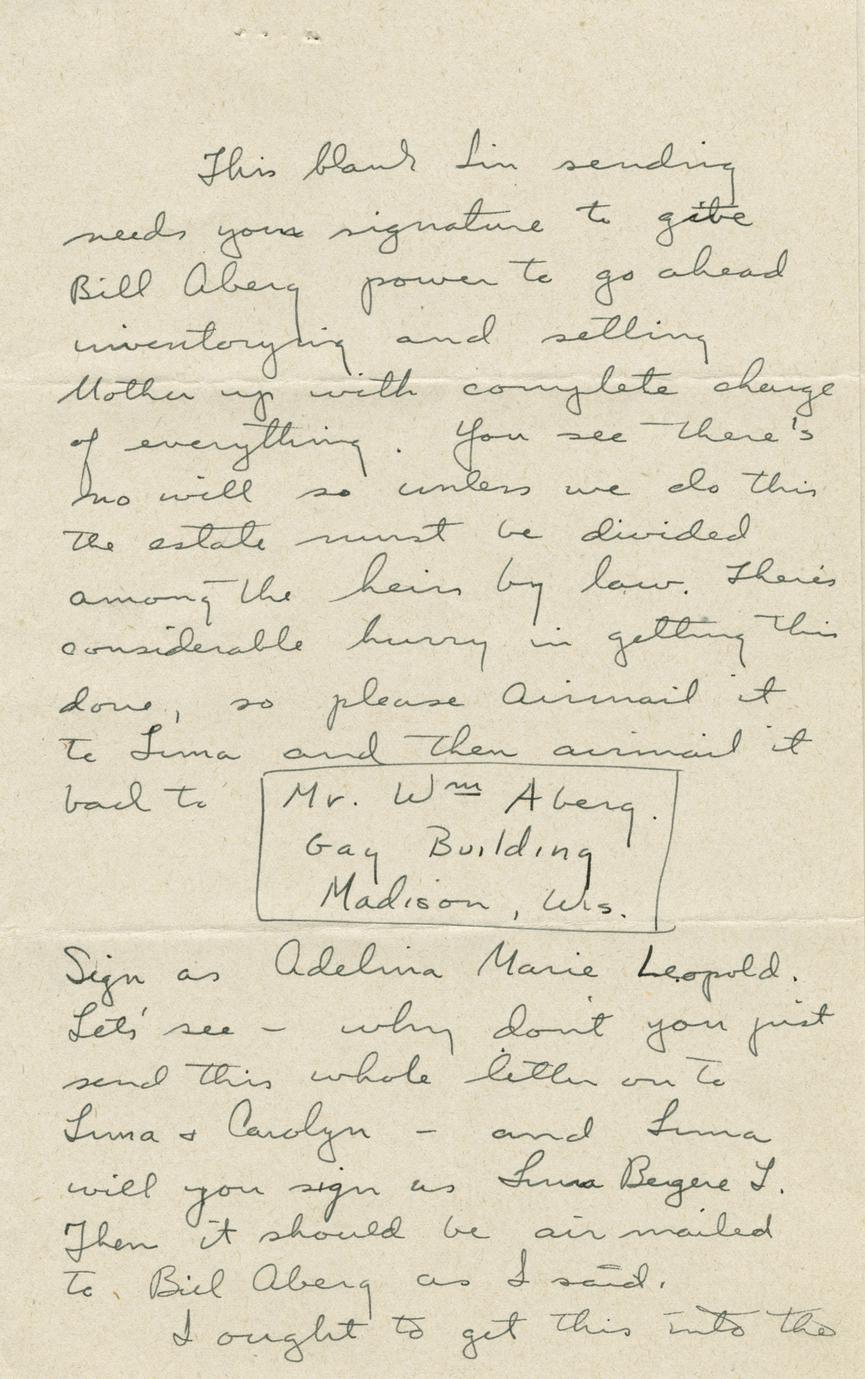 This blank I'm sending
needs your signature to give
Bill Aberg power to go ahead
inventorying and setting
Mother up with complete charge
of everything. You see there's
no will so unless we do this
the estate must be divided
among the heirs by law. There's
considerable hurry in getting this
done, so please airmail it
to Luna and then airmail it
back to Mr. Wm Aberg.
Gay Building
Madison, Wis.
Sign as Adelina Marie Leopold.
Lets' see - why don't you just
send this whole letter on to
Luna & Carolyn - and Luna
will you sign as Luna Bergere L.
Then it should be air mailed
to Bill Aberg as I said.
I ought to get this into the